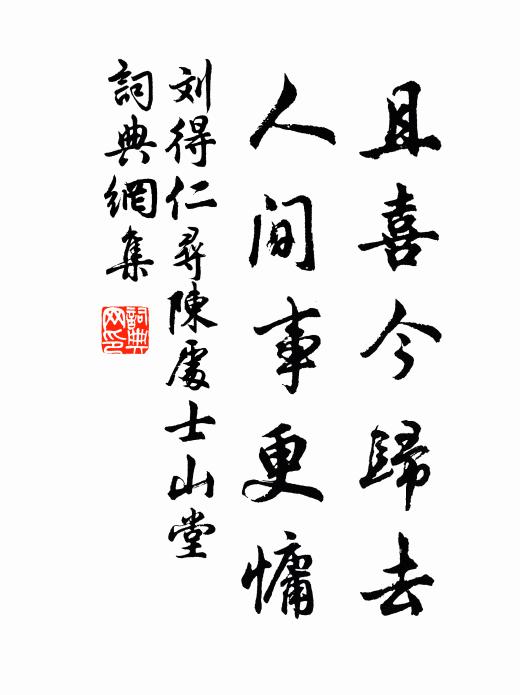 且喜今歸去
人間事更慵
刘得仁尋陳處士山堂
詞典網集
詞典
网印